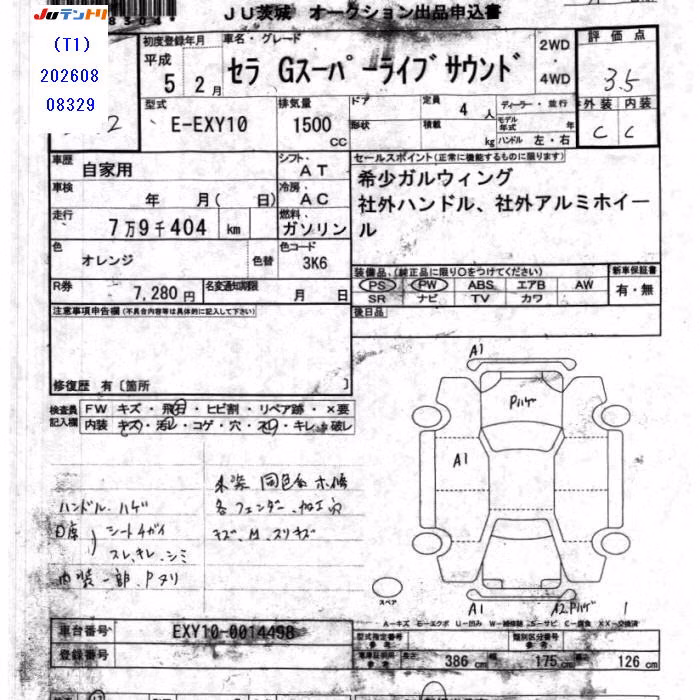 JUテントリ
(T1)
202608
08329
8304*
JU茨城 オークション出品申込書
初度登録年月
平成
5 2月
車名・グレード
セラ Gスーパーライブサウンド
2WD
・
4WD
評価点
3.5
外装 内装
C C
型式
E-EXY10
排気量
1500
CC
ドア
形状
定員
4人
積載
kg
ディーラー・並行
モデル年式 年
ハンドル 左・右
車歴
自家用
シフト
AT
車検
年 月(日)
冷房
AC
走行
7万9千404 km
燃料
ガソリン
色
オレンジ
色替
色コード
3K6
R券
7,280円
名変通知期限
月 日
セールスポイント(正常に機能するものに限ります)
希少ガルウィング
社外ハンドル、社外アルミホイー
ル
装備品(純正品に限り○をつけてください)
PS PW ABS エアB AW
SR ナビ TV カワ
新車保証書
有・無
後日品
注意事項申告欄(不具合内容等は具体的に記入して下さい)
修復歴 有〔箇所 〕
検査員
記入欄
FW キズ・飛石・ヒビ割・リペア跡・×要
内装 キズ・汚レ・コゲ・穴・スリ・キレ・破レ
ハンドル ハゲ
スレ、キレ、シミ
内装一部、Pヌリ
各フェンダー 加工穴
キズ M スリキズ
A1
Pハゲ
A1
A1
A2 Pハゲ
スペア
A-キズ E-エクボ U-凹み W-補修跡 S-サビ C-腐食 XX-交換済
車台番号
EXY10-0014498
登録番号
型式指定番号
参考
類別区分番号
参考
386cm
175cm
126cm